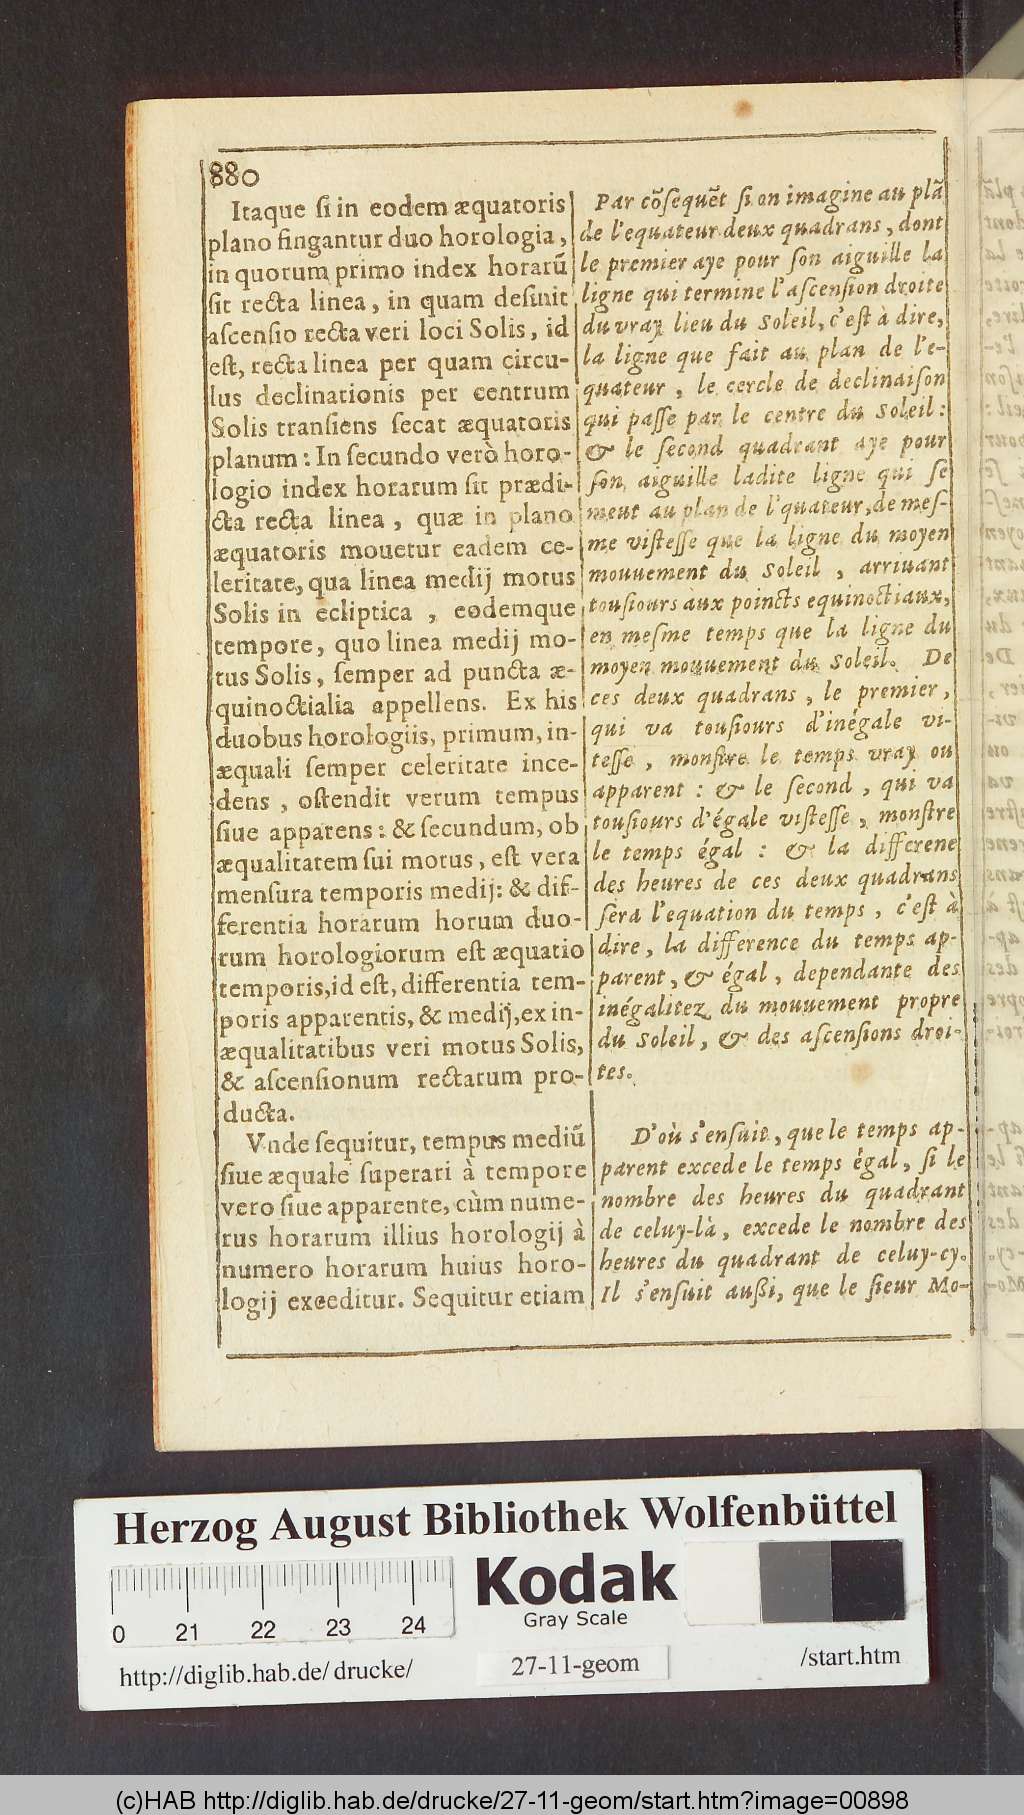 880
Itaque ſi in eodem æquatoris
plano fingantur duo horologia,
in quorum primo index horarũ
ſit recta linea, in quam deſinit
aſcenſio recta veri loci Solis, id
eſt, recta linea per quam circu-
lus declinationis per centrum
Solis tranſiens ſecat æquatoris
planum: In ſecundo verò horo-
logio index horarum ſit prædi-
cta recta linea, quæ in plano
æquatoris mouetur eadem ce-
leritate, qua linea medij motus
Solis in ecliptica, eodemque
tempore, quo linea medij mo-
tus Solis, ſemper ad puncta æ-
quinoctialia appellens. Ex his
duobus horologiis, primum, in-
æquali ſemper celeritate ince-
dens, oſtendit verum tempus
ſiue apparens: & ſecundum, ob
æqualitatem ſui motus, eſt vera
menſura temporis medij: & dif-
ferentia horarum horum duo-
rum horologiorum eſt æquatio
temporis, id eſt, differentia tem-
poris apparentis, & medij, ex in-
æqualitatibus veri motus Solis,
& aſcenſionum rectarum pro-
ducta.
Vnde ſequitur, tempus mediũ
ſiue æquale ſuperari à tempore
vero ſiue apparente, cùm nume-
rus horarum illius horologij à
numero horarum huius horo-
logij exceditur. Sequitur etiam
Par cõſequẽt ſi on imagine au plã
de l'equateur deux quadrans, dont
le premier aye pour ſon aiguille la
ligne qui termine l'aſcenſion droite
du vray lieu du Soleil, c'eſt à dire,
la ligne que fait au plan de l'e-
quateur, le cercle de declinaiſon
qui paſſe par le centre du Soleil:
& le ſecond quadrant aye pour
ſon aiguille ladite ligne qui ſe
meut au plan de l'quateur, de meſ-
me viſteſſe que la ligne du moyen
mouuement du Soleil, arriuant
touſiours aux poincts equinoctiaux,
en meſme temps que la ligne du
moyen mouuement du Soleil. De
ces deux quadrans, le premier,
qui va touſiours d'inégale vi-
teſſe, monſtre le temps vray ou
apparent: & le ſecond, qui va
touſiours d'égale viſteſſe, monſtre
le temps égal: & la differene
des heures de ces deux quadrans
ſera l'equation du temps, c'eſt à
dire, la difference du temps ap-
parent, & égal, dependante des
inégalitez du mouuement propre
du Soleil, & des aſcenſions droi-
tes.
D'où s'enſuit, que le temps ap-
parent excede le temps égal, ſi le
nombre des heures du quadrant
de celuy-là, excede le nombre des
heures du quadrant de celuy-cy.
Il s'enſuit außi, que le ſieur Mo-
Herzog August Bibliothek Wolfenbüttel
Kodak
Gray Scale
0 21 22 23 24
http://diglib.hab.de/drucke/
27-11-geom
/start.htm
(c)HAB http://diglib.hab.de/drucke/27-11-geom/start.htm?image=00898